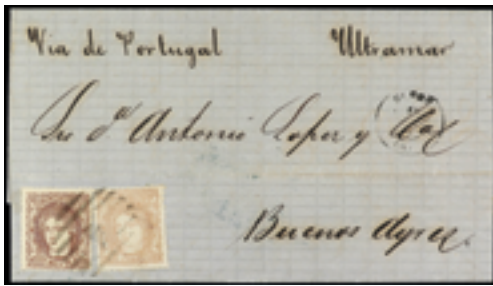 Via de Portugal Ultramar
Sr dn Antonio Lopez y Ca
Buenos Ayres.